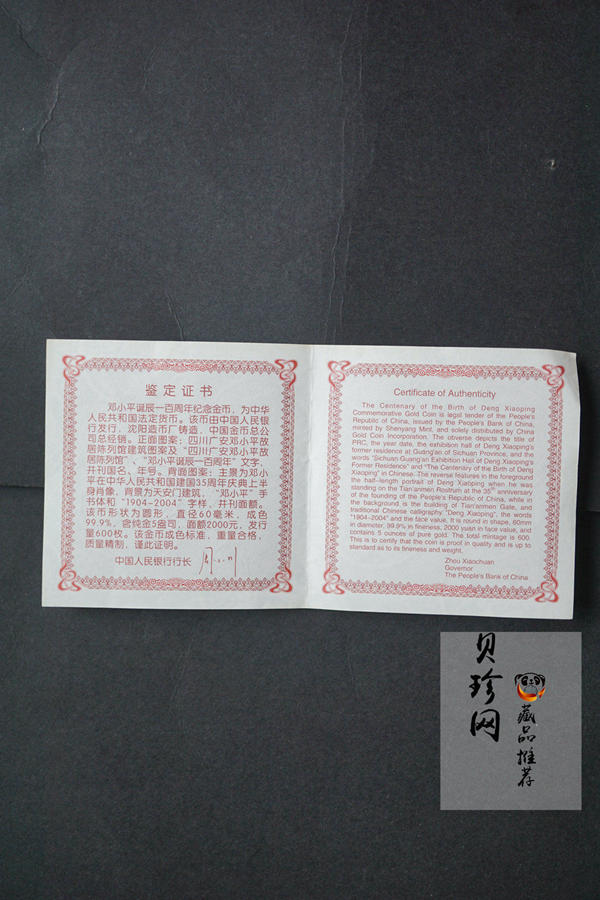 鉴定证书
邓小平诞辰一百周年纪念金币，为中华
人民共和国法定货币。该币由中国人民银
行发行，沈阳造币厂铸造，中国金币总公
司总经销。正面图案：四川广安邓小平故
居陈列馆建筑图案及“四川广安邓小平故
居陈列馆”、“邓小平诞辰一百周年”文字，
并刊国名、年号。背面图案：主景为邓小
平在中华人民共和国建国35周年庆典上半
身肖像，背景为天安门建筑，“邓小平”手
书体和“1904-2004”字样，并刊面额。
该币形状为圆形，直径60毫米，成色
99.9%，含纯金5盎司，面额2000元，发行
量600枚。该金币成色标准，重量合格，
质量精制，谨此证明。
中国人民银行行长
Certificate of Authenticity
The Centenary of the Birth of Deng Xiaoping
Commemorative Gold Coin is legal tender of the People's
Republic of China, issued by the People's Bank of China,
minted by Shenyang Mint, and solely distributed by China
Gold Coin Incorporation. The obverse depicts the title of
PRC, the year date, the exhibition hall of Deng Xiaoping's
former residence at Guang'an of Sichuan Province, and the
words "Sichuan Guang'an Exhibition Hall of Deng Xiaoping's
Former Residence" and "The Centenary of the Birth of Deng
Xiaoping" in Chinese. The reverse features in the foreground
the half-length portrait of Deng Xiaoping when he was
standing on the Tian'anmen Rostrum at the 35th anniversary
of the founding of the People's Republic of China, while in
the background is the building of Tian'anmen Gate, and
traditional Chinese calligraphy "Deng Xiaoping", the words
"1904-2004" and the face value. It is round in shape, 60mm
in diameter, 99.9% in fineness, 2000 yuan in face value, and
contains 5 ounces of pure gold. The total mintage is 600.
This is to certify that the coin is proof in quality and is up to
standard as to its fineness and weight.
Zhou Xiaochuan
Governor
The People's Bank of China
贝珍网
藏品推荐